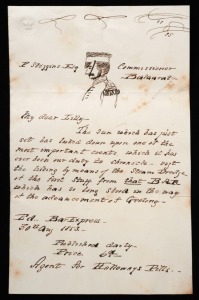 Esq Commissioner
Ballaarat
My dear Lilly
The Sun which has just
set has looked down upon one of the
most important events which it has
ever been our duty to chronicle. viz
the taking by means of the Steam Dredge
of the first stuff from that BAR
which has so long stood in the way
of the advancement of Geelong.
Ed. Bar Express
30th Aug 1853.
Published daily
Price 6d
Agent for Holloways Pills.